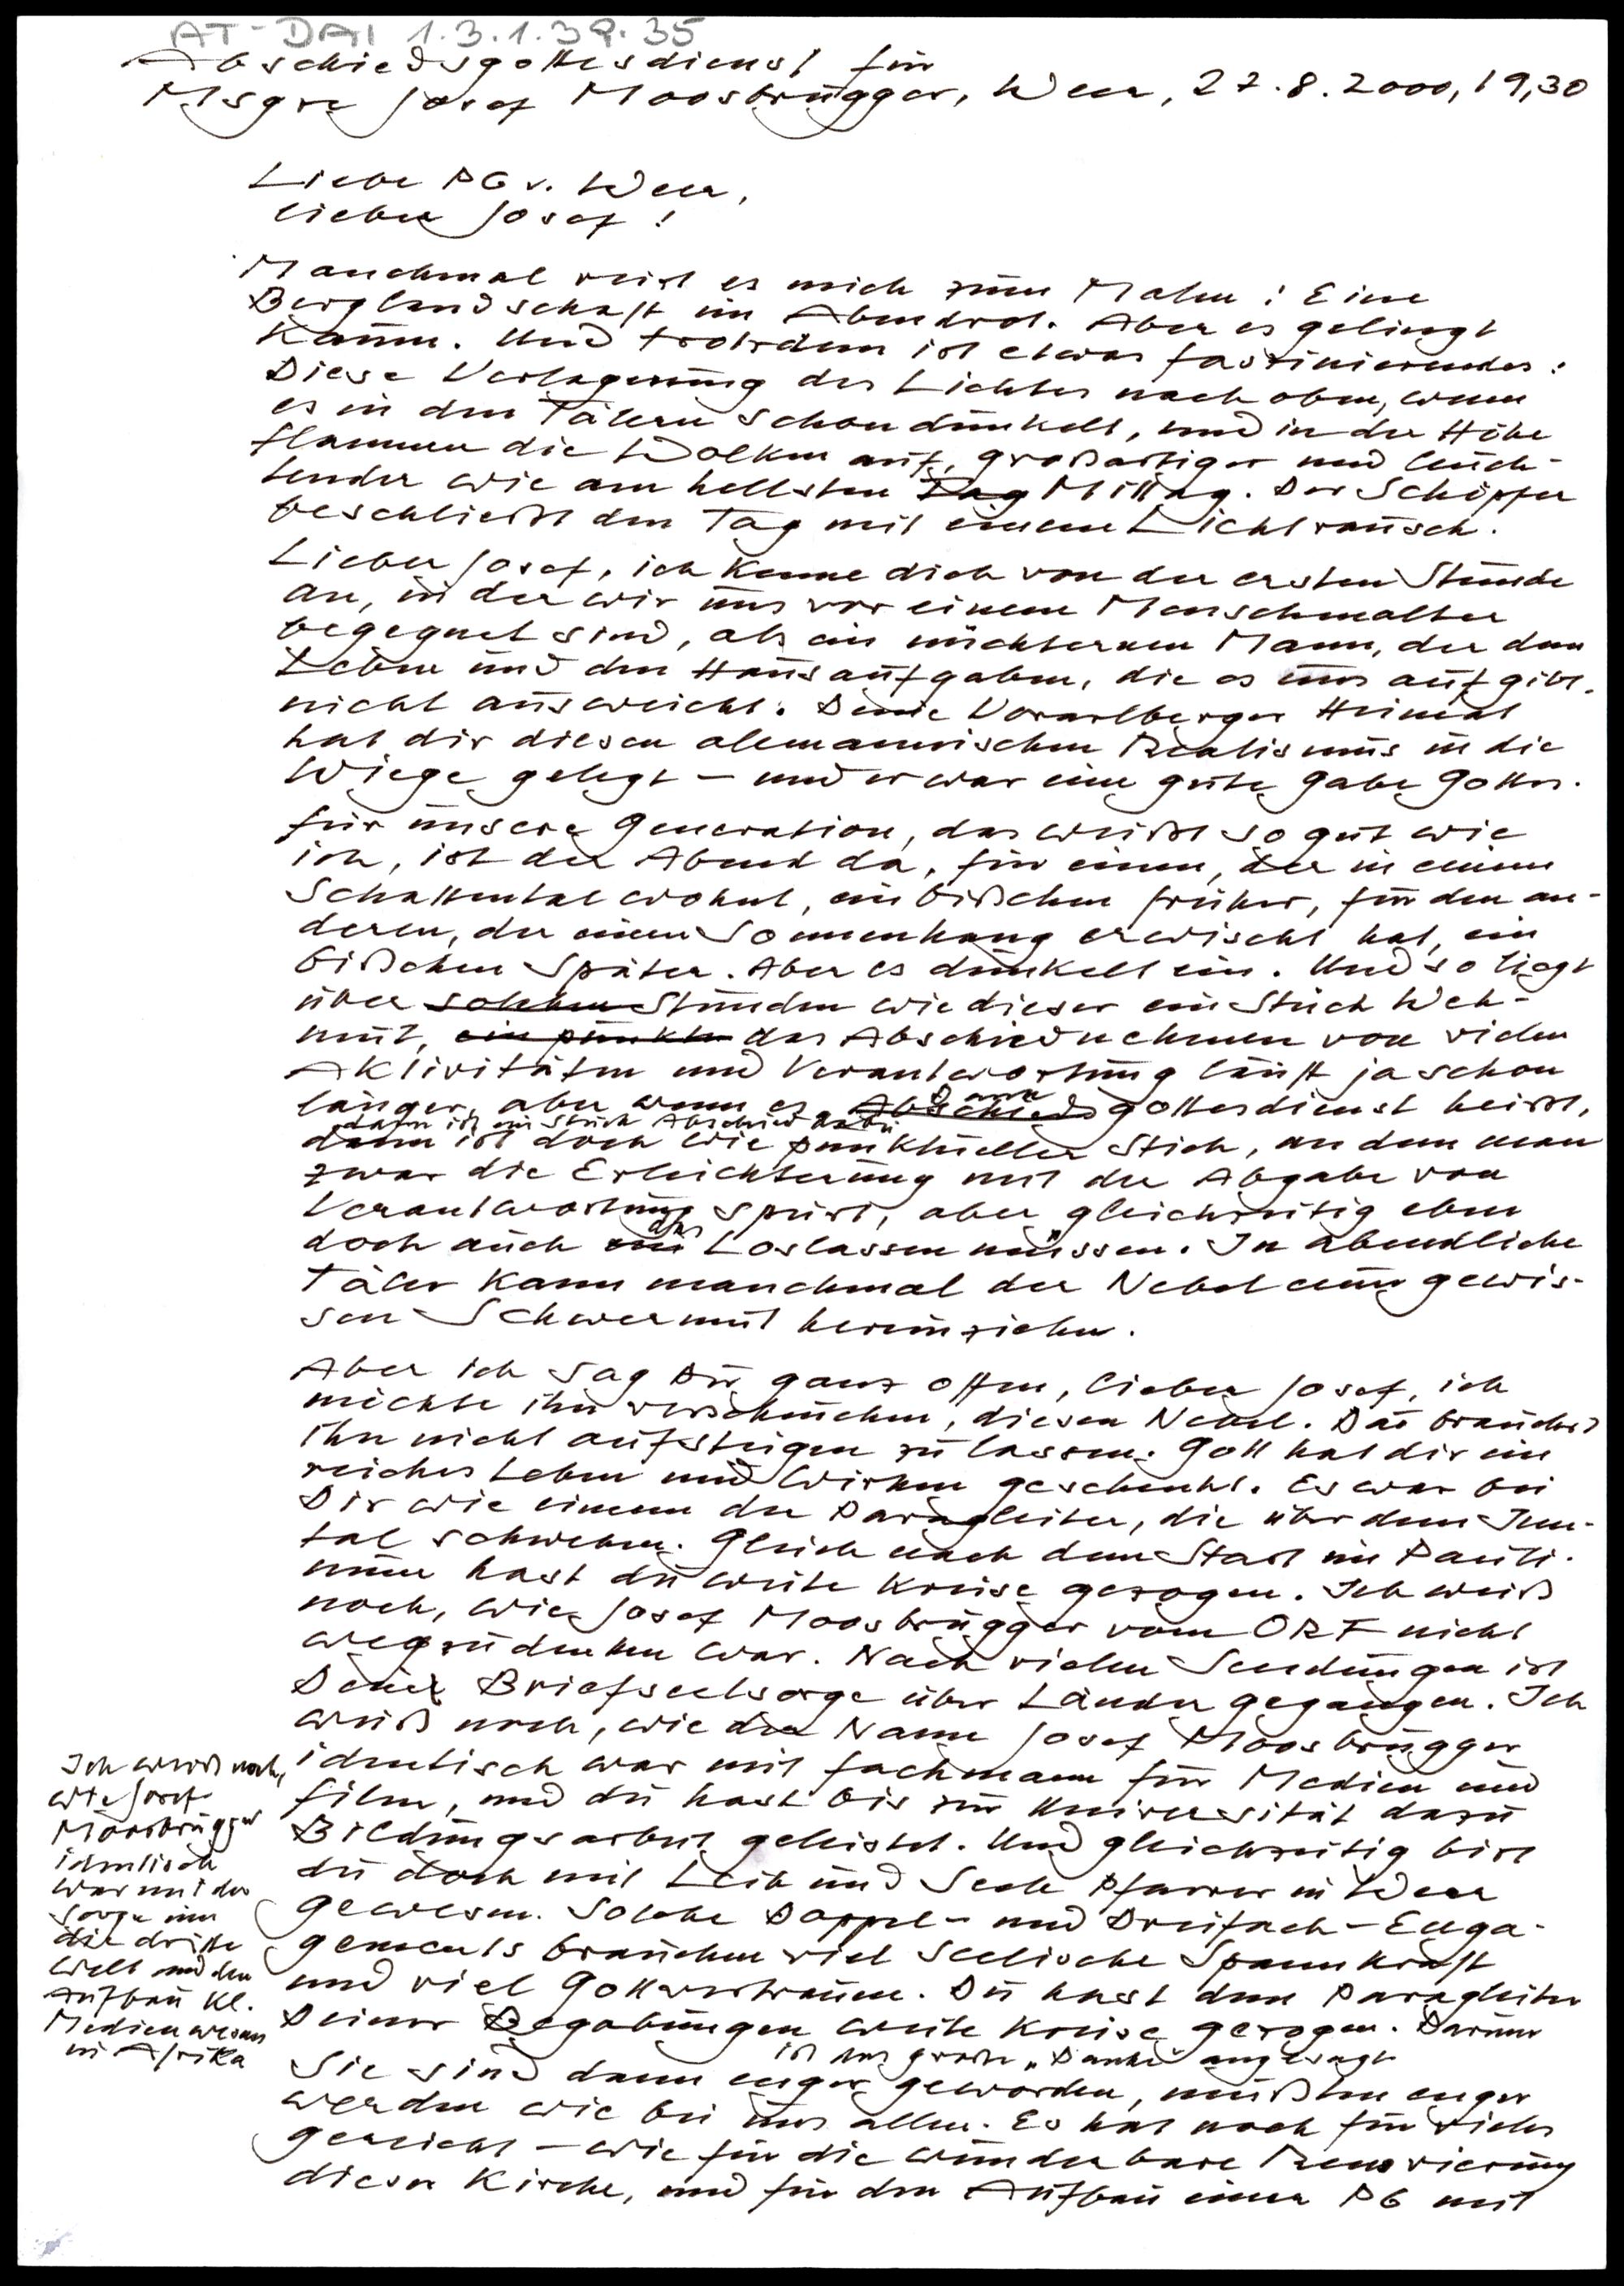 AT-DAI 1.3.1.39.35
Abschiedsgottesdienst für
Msgre Josef Moosbrugger, Weer, 27.8.2000, 19,30
Liebe PG v. Weer,
lieber Josef!
Manchmal reist es mich zum Malen: Eine
Berglandschaft im Abendrot. Aber es gelingt
kaum. Und trotzdem ist etwas faszinierendes:
Diese Verlagerung des Lichtes nach oben, wenn
es in den Tälern schon dunkelt, und in der Höhe
flammen die Wolken auf, großartiger und leuch-
tender wie am hellsten Tag Mittag. Der Schöpfer
beschließt den Tag mit einem Lichtrausch.
Lieber Josef, ich kenne dich von der ersten Stunde
an, in der wir uns vor einem Menschenalter
begegnet sind, als ein nüchternen Mann, der dem
Leben und den Hausaufgaben, die es uns aufgibt,
nicht ausweicht. Deine Vorarlberger Heimat
hat dir diesen alemannischen Realismus in die
Wiege gelegt – und er war eine gute Gabe Gottes.
für unsere Generation, das weißt so gut wie
ich, ist der Abend da, für einen, der in einem
Schattental wohnt, ein bißchen früher, für den an-
deren, der einen Sonnenhang erwischt hat, ein
bißchen später. Aber es dunkelt ein. Und so liegt
über solchen Stunden wie dieser ein Stück Weh-
mut, ein punkte das Abschiednehmen von vielen
Aktivitäten und Verantwortung läuft ja schon
länger, aber wenn es Abschieds Dank gottesdienst heißt,
dann ist ein Stück Abschied dabei
dann ist doch wie punktueller Stich, an dem man
zwar die Erleichterung mit der Abgabe von
Verantwortung spürt, aber gleichzeitig eben
doch auch ein das „Loslassen müssen". In abendliche
Täler kann manchmal der Nebel einer gewis-
sen Schwermut hereinziehen.
Aber ich sag Dir ganz offen, lieber Josef, ich
möchte ihn verscheuchen, diesen Nebel. Du brauchst
ihn nicht aufsteigen zu lassen. Gott hat dir ein
reiches Leben und Wirken geschenkt. Es war bei
Dir wie einem der Paragleiter, die über dem Inn-
tal schweben. Gleich nach dem Start im Pauli-
num hast du weite Kreise gezogen. Ich weiß
noch, wie Josef Moosbrugger vom ORF nicht
wegzudenken war. Nach vielen Sendungen ist
Deine Briefseelsorge über Länder gegangen. Ich
weiß noch, wie der Name Josef Moosbrugger
identisch war mit Fachmann für Medien und
Film, und du hast bis zur Universität dazu
Bildungsarbeit geleistet. Und gleichzeitig bist
du doch mit Leib und Seele Pfarrer in Weer
gewesen. Solche Doppel- und Dreifach-Enga-
gements brauchen viel seelische Spannkraft
und viel Gottvertrauen. Du hast dem Paragleiter
Deiner Begabungen weite Kreise gezogen. Darum
ist das große „Danke" angesagt
Ich weiß noch,
wie Josef
Moosbrugger
identisch
war mit der
Sorge um
die dritte
Welt und den
Aufbau kl.
Medienwesens
in Afrika
Sie sind dann enger geworden, mußten enger
werden wie bei uns allen. Es hat noch für vieles
gereicht – wie für die wunderbare Renovierung
dieser Kirche, und für den Aufbau einer PG mit